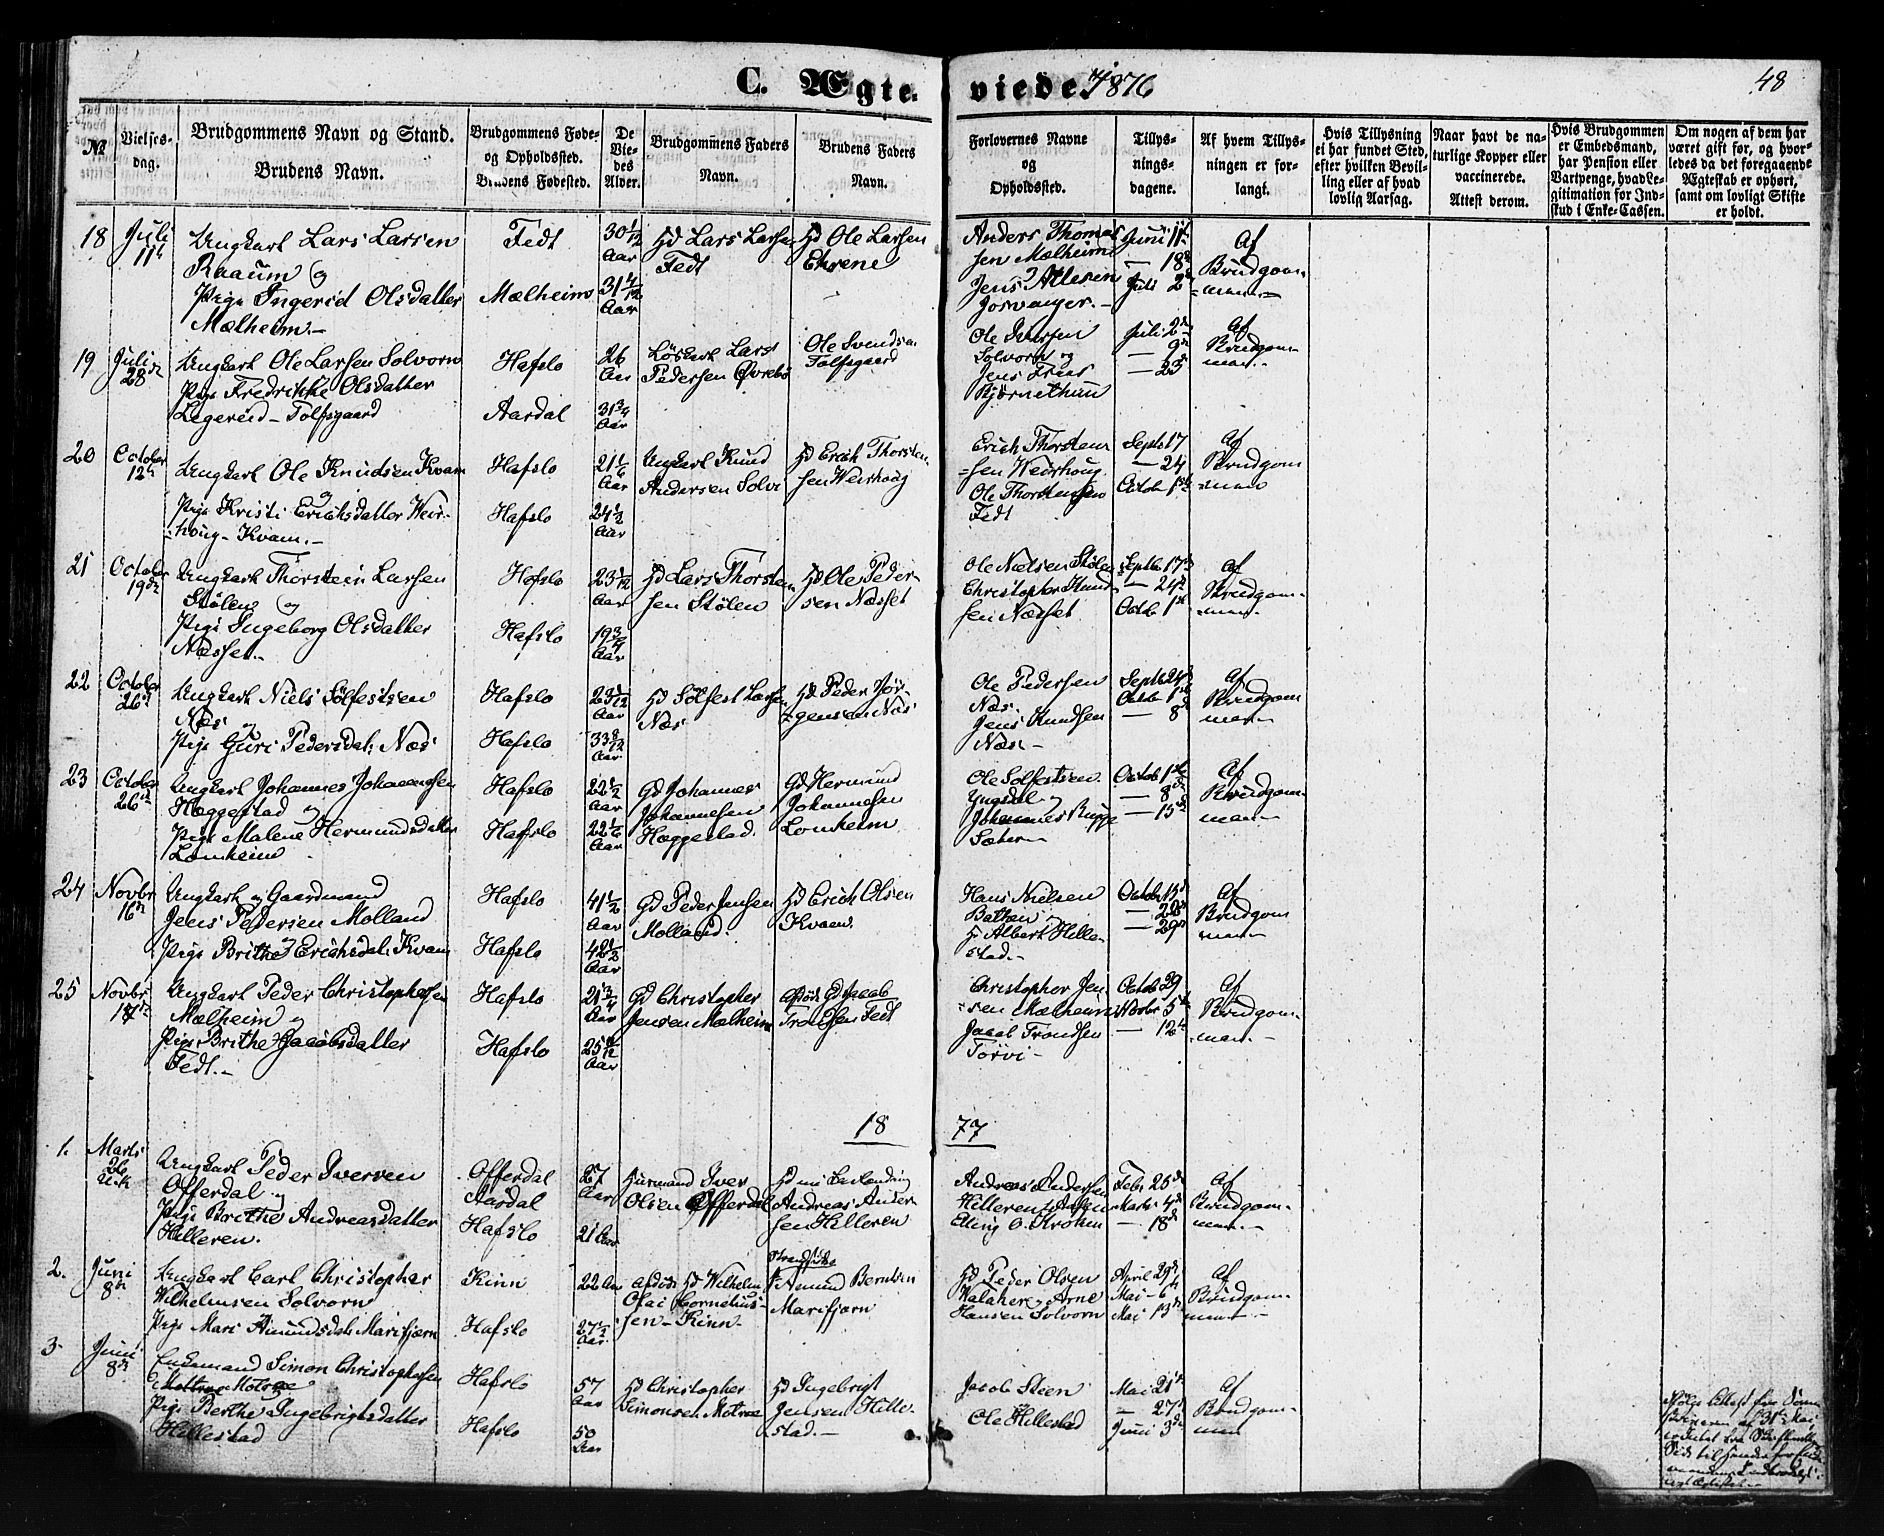 C. Ægte-viede. 1876
48
№
Vielses-dag.
Brudgommens Navn og Stand.
Brudens Navn.
Brudgommens Føde-og Opholdssted.
Brudens Fødested.
De Vie-des Alder.
Brudgommens Faders Navn.
Brudens Faders Navn.
Forlovernes Navne og Opholdssted.
Tillys-nings-dagene.
Af hvem Tillys-ningen er for-langt.
Hvis Tillysning ei har fundet Sted, efter hvilken Bevil-ling eller af hvad lovlig Aarsag.
Naar havt de na-turlige Kopper eller vaccinerede. Attest derom.
Hvis Brudgommen er Embedsmand, har Pension eller Vartpenge, hvad Le-gitimation for Ind-skud i Enke-Cassen.
Om nogen af dem har været gift før, og hvor-ledes da det foregaaende Ægteskab er ophørt, samt om lovligt Skifte er holdt.
18 Juli 11te
Ungkarl Lars Larsen
Raaum og
Pige Ingerid Olsdatter
Mælheim.-
Fedt
Mælheim
30 1/12 Aar
31 4/12 Aar
Hd Lars Larsen
Fedt
Hd Ole Larsen
Ehrene
Anders Thomas
sen Mælheim
Jens Atlesen
Joranger.-
Juni 11te
— 18de
Juli 2de
Af
Brudgom-
men.-
19 Juli 28de
Ungkarl Ole Larsen Solvorn
Pige Fredrikke Olsdatter
Legereid - Tolfsgaard
Hafslo
Aardal
26 Aar
31 3/4 Aar
Løskarl Lars
Pedersen Øvrebø
Ole Svendsen
Tolfsgaard
Ole Iversen
Solvorn og
Jens Friis
Bjørnethun
Juli 2de
— 9de
— 23
Af
Brudgom-
men.
20 October 12te
Ungkarl Ole Knudsen Kvam
og
Pige Kristi Erichsdatter Weir-
houg - Kvam.-
Hafslo
Hafslo
21 1/6 Aar
24 1/2 Aar
Ungkarl Knud
Andersen Solvi
Hd Erich Thorsten-
sen Weirhoug
Erich Thorsten-
sen Weirhoug.
Ole Thorstensen
Fedt
Septb 17
— 24
Octob 1ste
Af
Brudgom
men
21 October 19de
Ungkarl Thorstein Larsen
Stølen og
Pige Ingeborg Olsdatter
Næsset.-
Hafslo
Hafslo
23 5/12 Aar
19 3/4 Aar
Hd Lars Thorsten-
sen Stølen
Hd Ole Peder-
sen Næsset
Ole Nielsen Stølen
Christopher Knud-
sen Næsset
Septb 17de
— 24de
Octob 1ste
Af
Brudgom-
men.
22 October 26de
Ungkarl Niels Sølfestsen
Næs og
Pige Guri Pedersdat: Næs
Hafslo
Hafslo
Aar
33 8/12 Aar
Hd Sølfest Larsen
Næs
Hd Peder Jør-
gensen Næs
Ole Pedersen
Næs.
Jens Knudsen
Næs.-
Septb 24de
Octob 1ste
— 8de
Af
Brudgom
men
23 October 26de
Ungkarl Johannes Johannesen
Hæggestad og
Pige Malene Hermundsdatter
Lomheim
Hafslo
Hafslo
22 1/2 Aar
22 1/6 Aar
Gd Johannes
Johannesen
Hæggestad.
Gd Hermund
Johannesen
Lomheim
Ole Solfestsen
Yngsdal og
Johannes Rygge
Sæter
Octob 1ste
— 8de
— 15de
Af
Brudgom-
men
24 Novbr 16de
Ungkarl og Gaardmand
Jens Pedersen Molland
og
Pige Brithe Erichsdat: Kvam
Hafslo
Hafslo
41 1/2 Aar
42 1/2 Aar
Gd Peder Jensen
Molland.
Hd Erich Olsen
Kvam
Hans Nielsen
Batten
Albert Hille-
stad.-
Octob 15de
— 22de
— 29de
Af
Brudgom
men
25 Novbr 17de
Ungkarl Peder Christophersen
Mælheim og
Pige Brithe Jacobsdatter
Fedt.-
Hafslo
Hafslo
21 3/4 Aar
Aar
Gd Christopher
Jensen Mælheim
Afdøde Gd Jacob
Trondsen Fedt
Christopher Jen
sen Mælheim
Jacob Trondsen
Torvi
Octob 29
Novbr 5te
— 12te
Af
Brudgom-
men.
18 77
1. Marts 26
Ungkarl Peder Iversen
Offerdal og
Pige Brithe Andreasdatter
Hilleren.
Offerdal
Aardal
Hafslo
27 Aar
21 Aar
Huusmand Iver
Olsen Offerdal
Andreas Ander-
sen Hilleren
Andreas Andersen
Hilleren
Elling O. Kroken
Febr 25de
Marts 4de
— 18de
Af
Brudgom-
men.-
2. Juni 8de
Ungkarl Carl Christopher
Wilhelmsen Solvorn
Pige Mari Amundsdat: Marifjæren
Kinn
Hafslo
22 Aar
27 1/2 Aar
Afdøde Hd Wilhelm
Olai Cornelius-
sen - Kinn
Strandsidder
Amund Berntsen
Marifjæren
Hd Peder Olsen
Arne
Hansen Solvorn
April 29de
Mai - 6te
Mai 13de
Af
Brudgom-
men.-
3. Juni 8de
Enkemand Simon Christophersen
Molræ
Pige Berthe Ingebrigtsdatter
Hillestad
Hafslo
Hafslo
57 Aar
50 Aar
Hd Christopher
Simonsen Molræ
Hd Ingebrigt
Jensen Hille-
stad.-
Jacob Steen
Ole Hillestad
Mai 21de
— 27de
Juni 3de
Af
Brudgom-
men